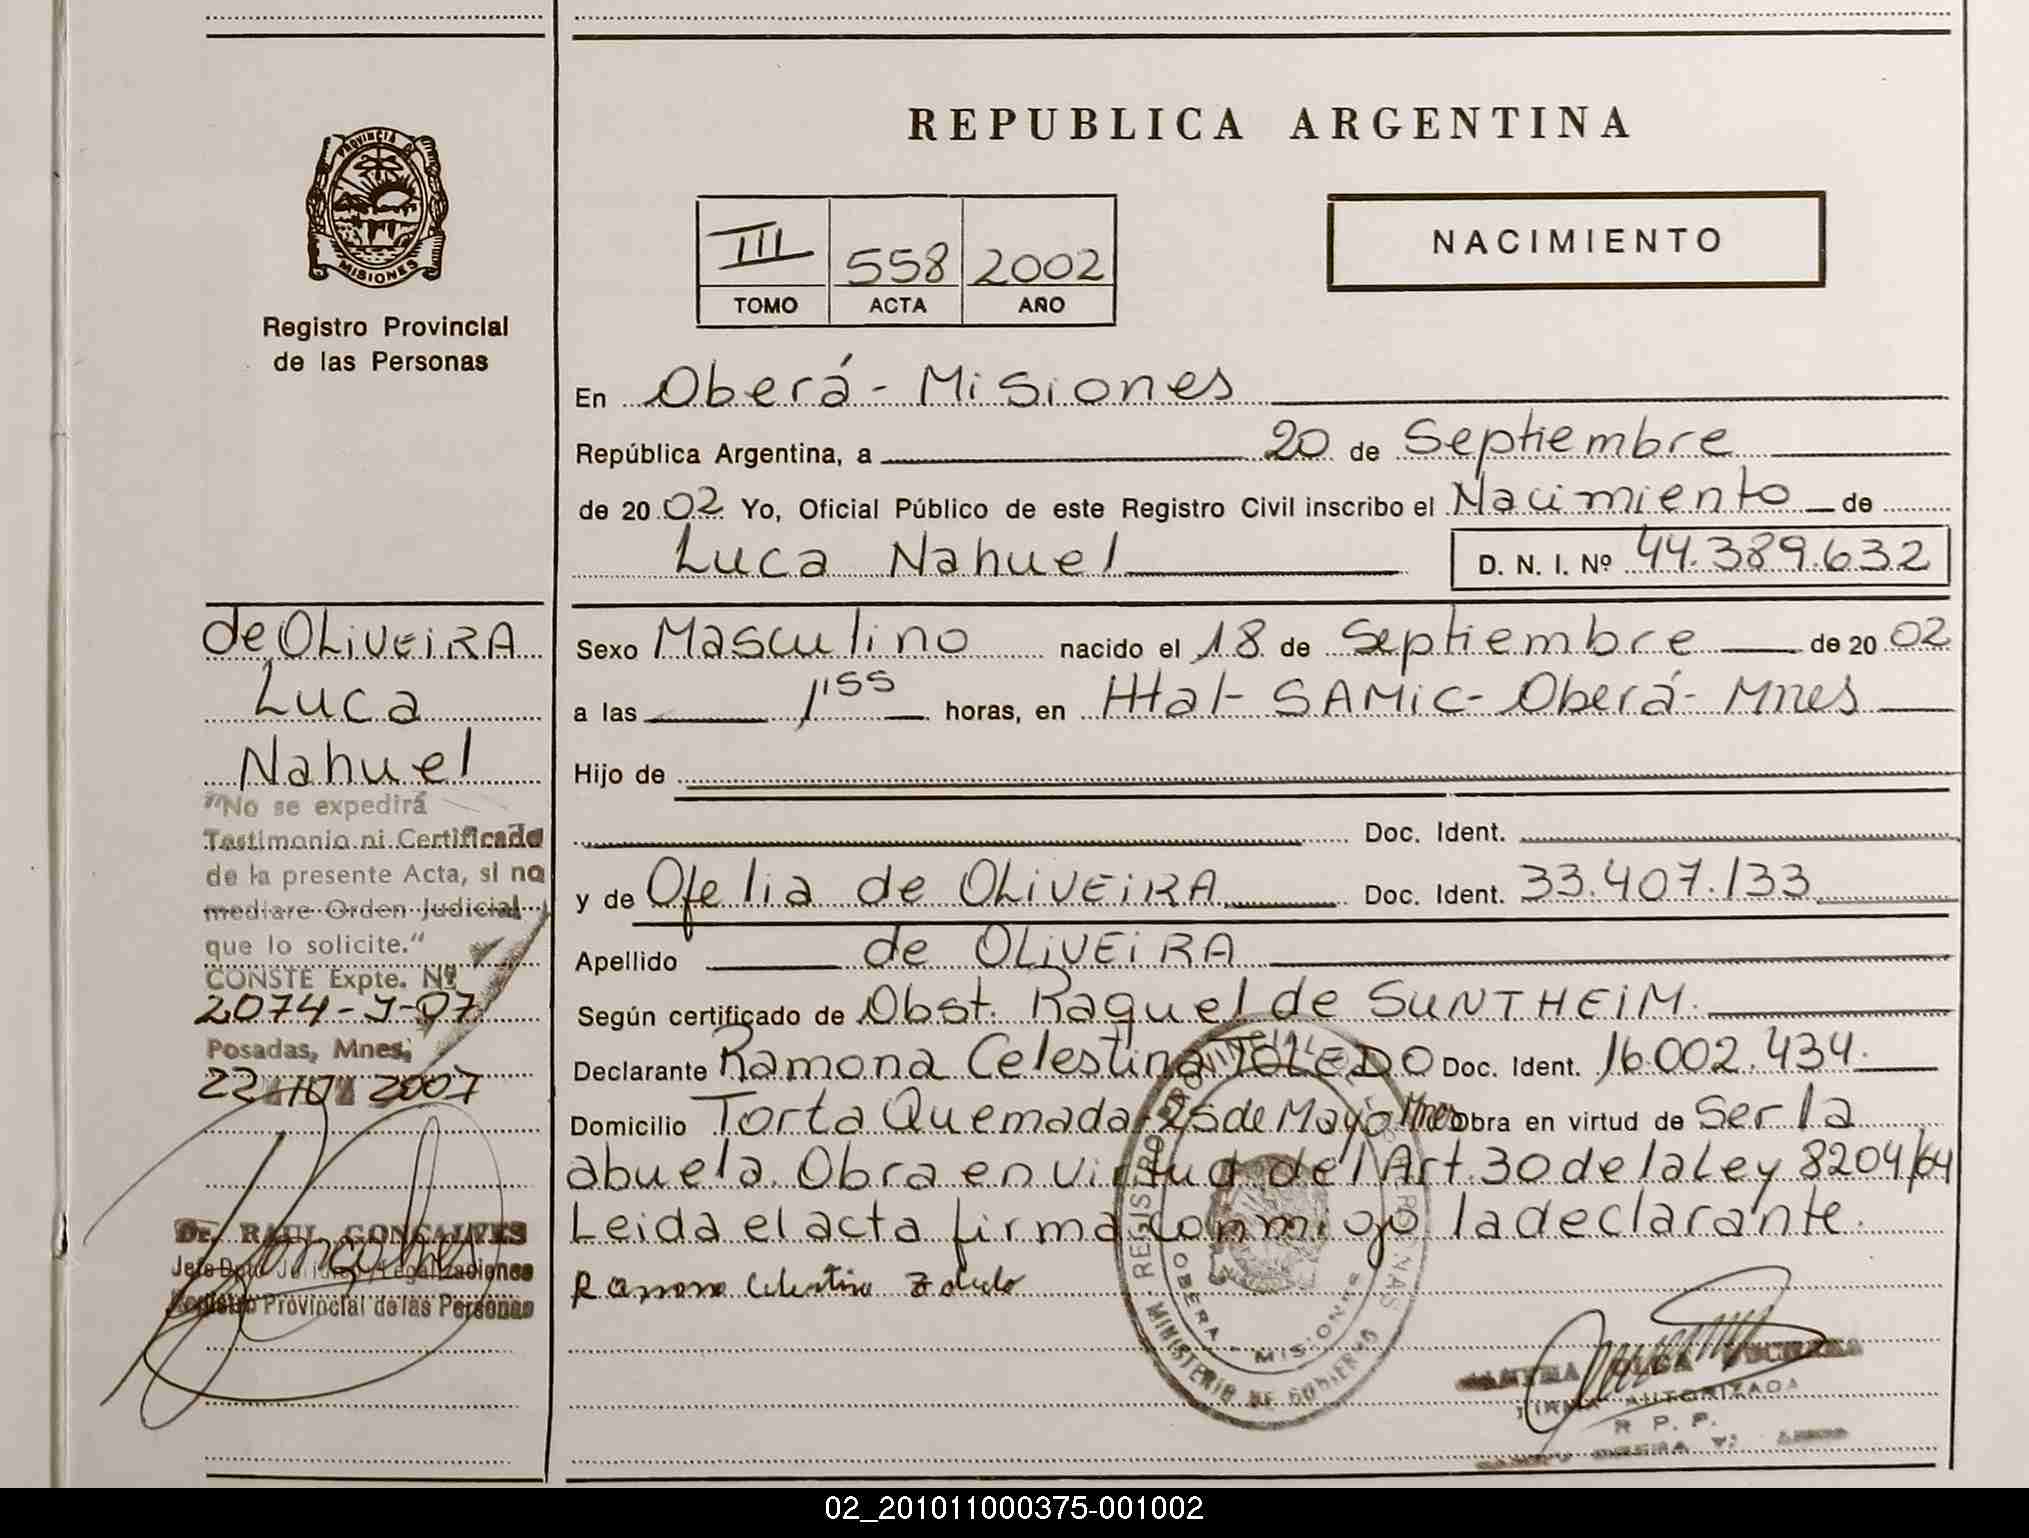 PROVINCIA DE
MISIONES
Registro Provincial
de las Personas
de OLIVEIRA
Luca
Nahuel
"No se expedirá
Testimonio ni Certificado
de la presente Acta, si no
mediare Orden Judicial
que lo solicite."
CONSTE Expte. Nº
2074-J-07
Posadas, Mnes,
22 2007
Dr. RAUL GONCALVES
Jefe Dpto Jurídico/Legalizaciones
Registro Provincial de las Personas
REPUBLICA ARGENTINA
III 558 2002
TOMO ACTA AÑO
NACIMIENTO
En Oberá - Misiones
República Argentina, a 20 de Septiembre
de 2002 Yo, Oficial Público de este Registro Civil inscribo el Nacimiento de
Luca Nahuel D. N. I. Nº 44.389.632
Sexo Masculino nacido el 18 de Septiembre de 2002
a las 1'55 horas, en Htal- SAMiC- Oberá- Mnes
Hijo de
Doc. Ident.
y de Ofelia de OLIVEIRA Doc. Ident. 33.407.133
Apellido de OLIVEIRA
Según certificado de Obst. Raquel de SUNTHEIM.
Declarante Ramona Celestina TOLEDO Doc. Ident. 16.002.434.
Domicilio Torta Quemada 25 de Mayo Mnes Obra en virtud de Ser la
abuela. Obra en virtud del Art. 30 de la Ley 8204/64
Leida el acta firma conmigo la declarante.
Ramona Celestina Toledo
REGISTRO PROVINCIAL DE LAS PERSONAS
OBERA - MISIONES
MINISTERIO DE GOBIERNO
OLGA
FIRMA AUTORIZADA
R. P. P.
02_201011000375-001002